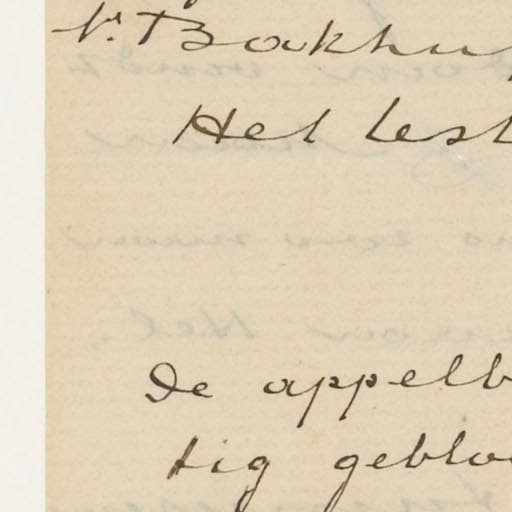 v. Bakhu
Het lest
De appelb
tig gebloe